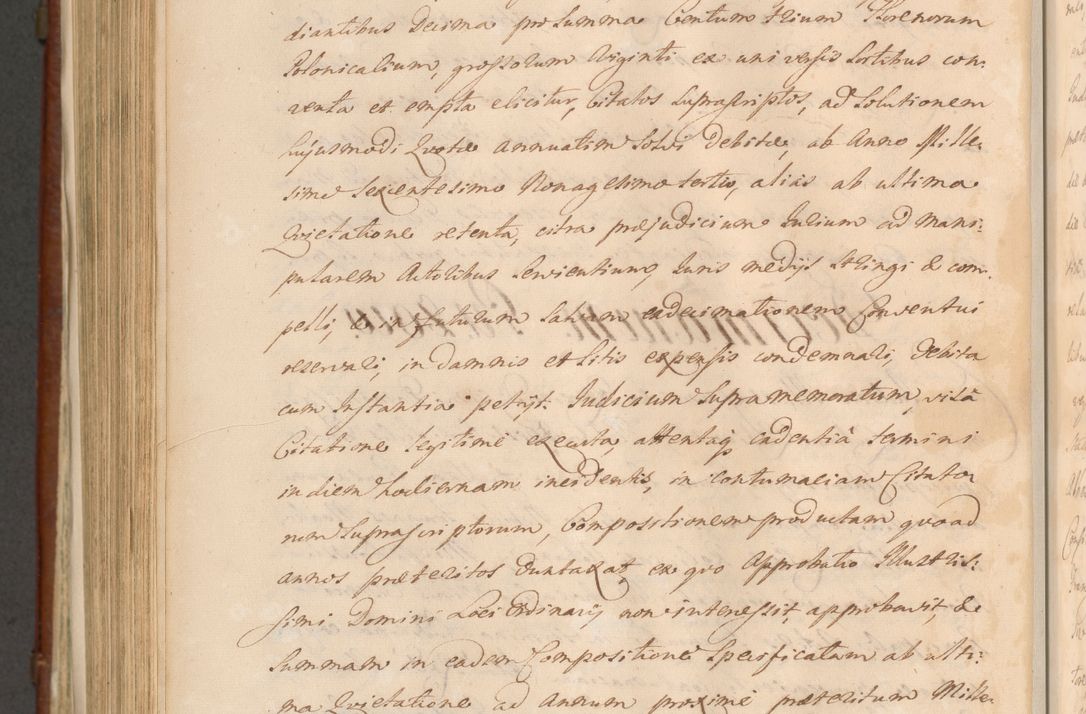 diantibus Decima pro Summa Centum trium Florenorum
Polonicalium, grossorum Viginti ex universis Sortibus con-
venta et empta elicitur, Citatos Suprascriptos, ad Solutionem
hujusmodi Quotæ annuatim Solvi debitæ, ab Anno Mille-
simo Sexcentesimo Nonagesimo tertio, alias ab ultima
Quietatione retenta, citra præjudicium Iurium ad Mani-
pularem Actoribus Servientium, Iuris medijs Stringi & com-
pelli, & in futurum Salvam eadecimationem Conventui
reservari, in damnis et Litis expensis condemnari, debita
cum Instantia petijt. Iudicium Supramemoratum, visâ
Citatione legitimè executa, attentaq cadentiâ termini
in diem hodiernam incidentis, in Contumaciam Citator
num Suprascriptorum, Compositionem productam quoad
annos præteritos duntaxat, ex quo Approbatio Illustris-
simi Domini Loci Ordinarij non interessit, approbavit, &
Summam in eadem Compositione Specificatam ab ulti-
ma Quietatione ad Annum proximè præteritum Mille-